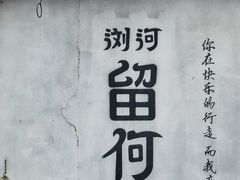 浏河
留何
你在快乐的行走而我